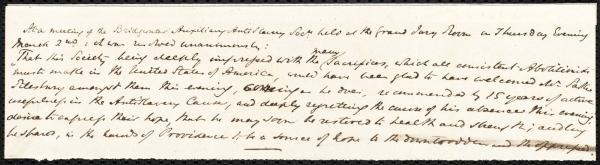 At a meeting of the Bridgwater Auxiliary Anti Slavery Socy held at the Grand Jury Room on Thursday Evening
March 2nd; it was resolved unanimously:
many
"That this Society being deeply impressed with the Sacrifices, which all consistent Abolitionists
must make in the United States of America, would have been glad to have welcomed Mr Parker
Pillsbury amongst them this evening, coming as he does, recommended by 15 years of active
usefulness in the Anti Slavery Cause, and deeply regretting the cause of his absence this evening
desire to express their hope that he may soon be restored to health and strength; and long
be spared, in the hands of Providence to be a source of hope to the downtrodden and the oppressed.